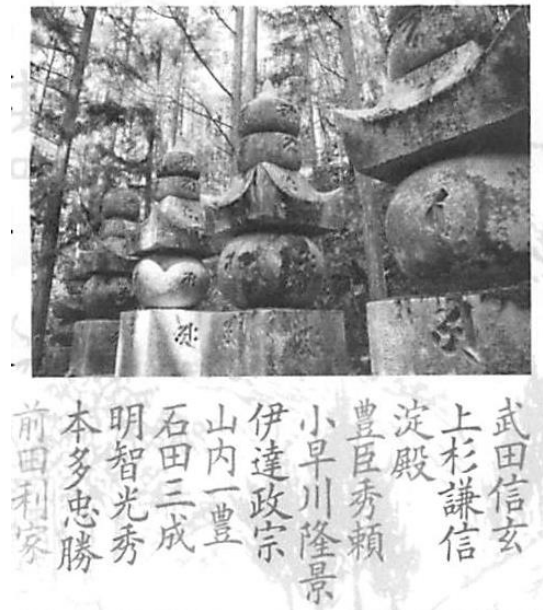 武田信玄
上杉謙信
淀殿
豊臣秀頼
小早川隆景
伊達政宗
山内一豊
石田三成
明智光秀
本多忠勝
前田利家